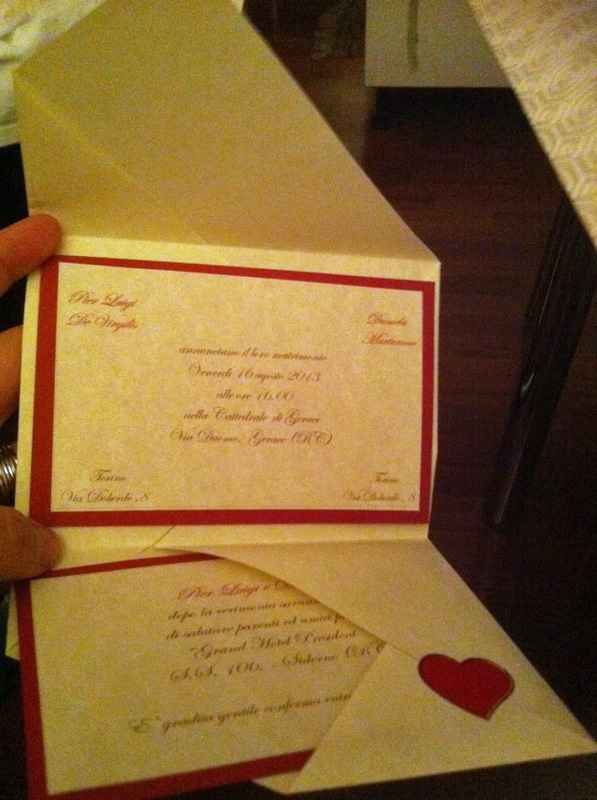 Pier Luigi
De Virgilis
Daniela
annunciano il loro matrimonio
Venerdì 16 agosto 2013
alle ore 16.00
nella Cattedrale di Gerace
Via Duomo, Gerace (RC)
Torino
Via Doberdò, 8
Torino
Via Doberdò, 8
Pier Luigi e
dopo la cerimonia saranno
di salutare parenti ed amici
"Grand Hotel President
S.S. 106, - Siderno (RC
E' gradita gentile conferma entro